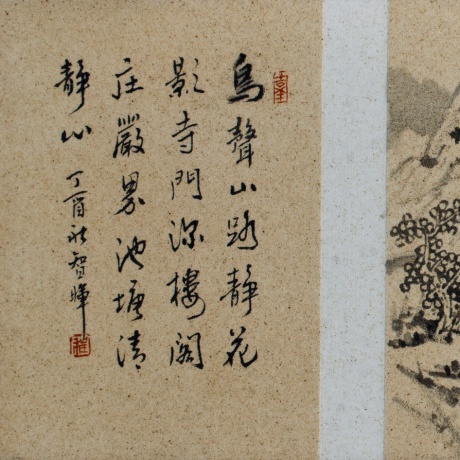 鳥聲山路静花
影寺門深樓閣
庄嚴界池塘清
静心
丁酉秋智暉